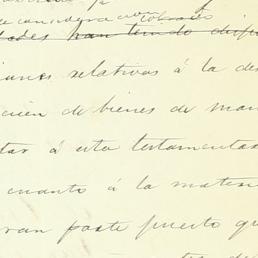 consideración cobrado
dades han tenido dispo
iones relativas á la des
ción de bienes de man
tar á esta testamentar
cuanto á la maten
ran parte puesto qu